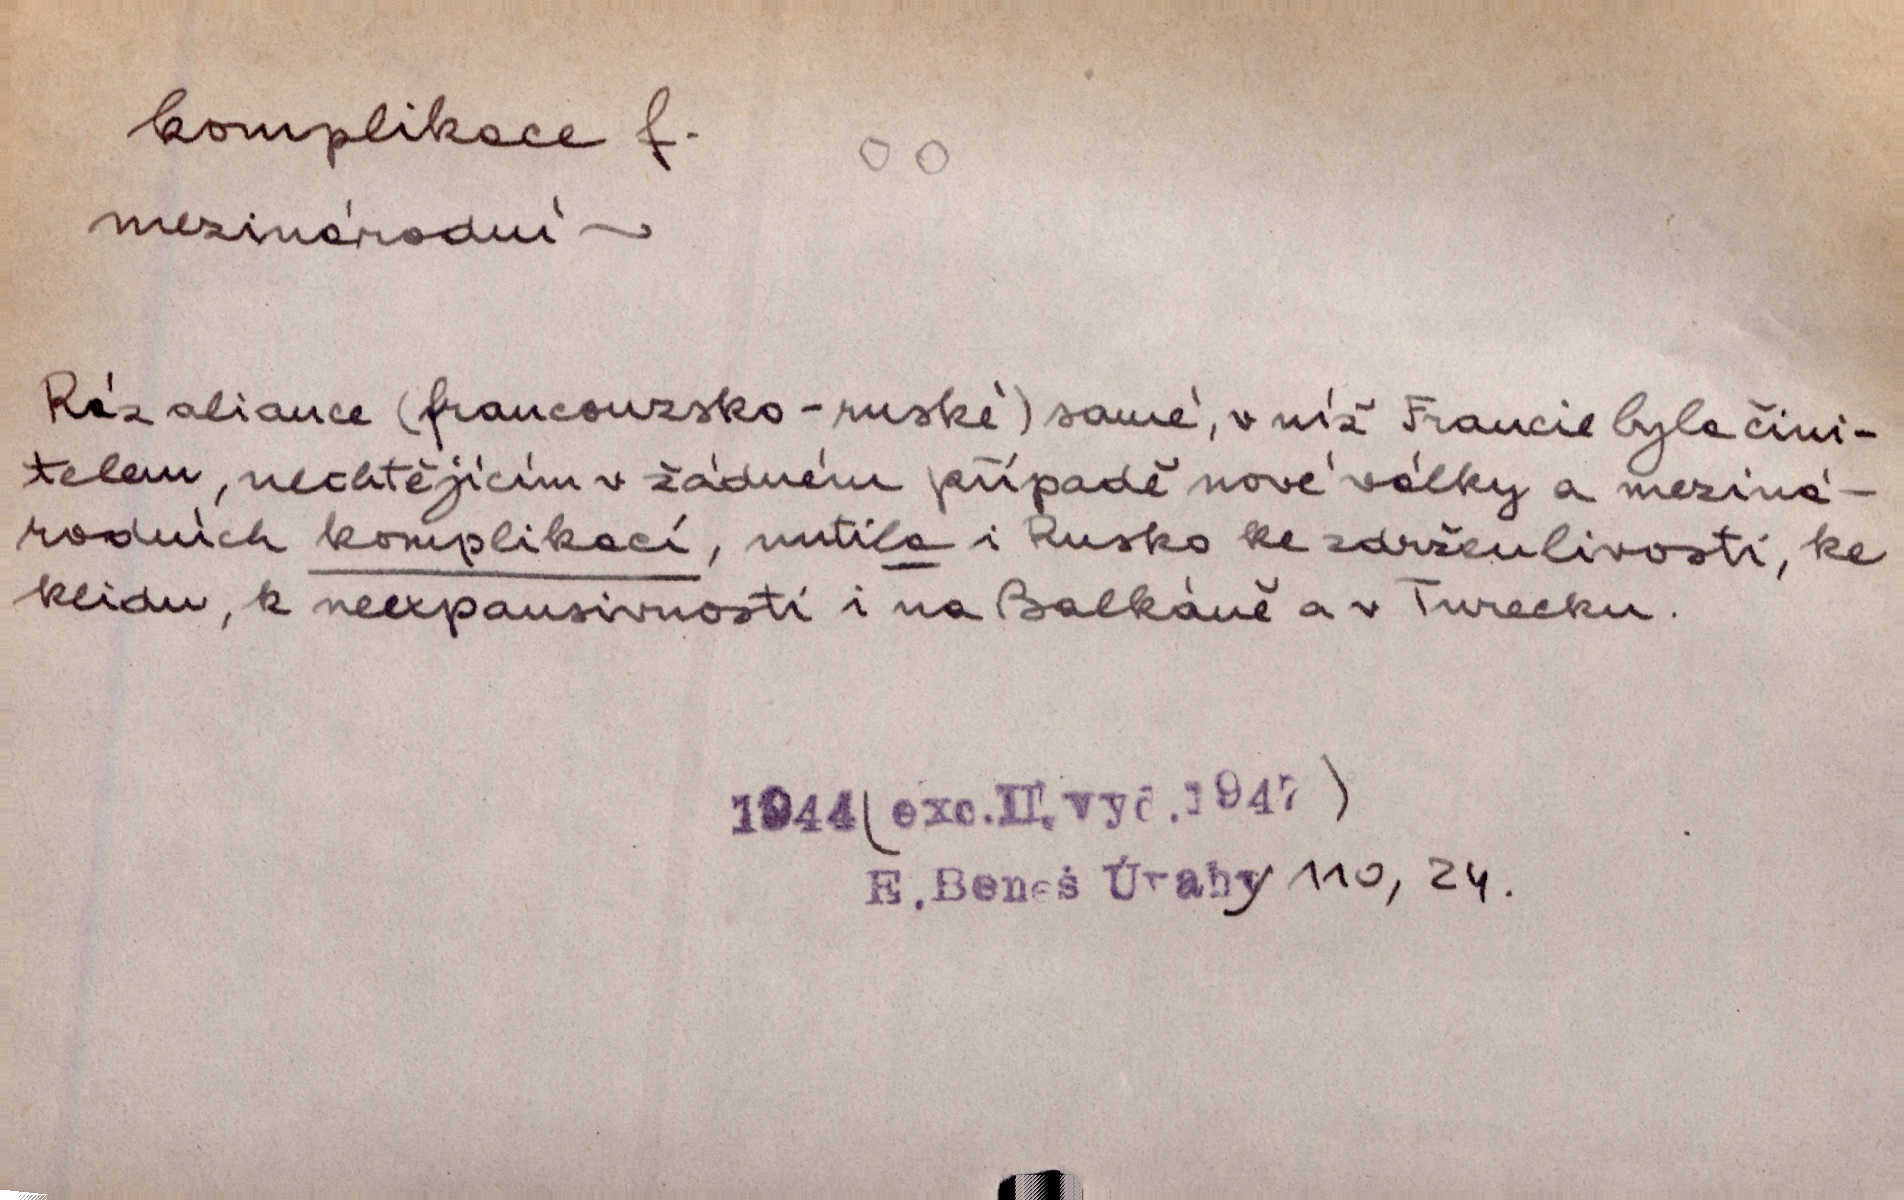 komplikace f.
mezinárodní ~
Ráz aliance (francouzsko-ruské) samé, v níž Francie byla čini-
telem, nechtějícím v žádném případě nové války a meziná-
rodních komplikací, nutila i Rusko ke zdrženlivosti, ke
klidu, k neexpansivnosti i na Balkáně a v Turecku.
1944 (exc.II.vyd.1947)
E.Beneš Úvahy 110, 24.